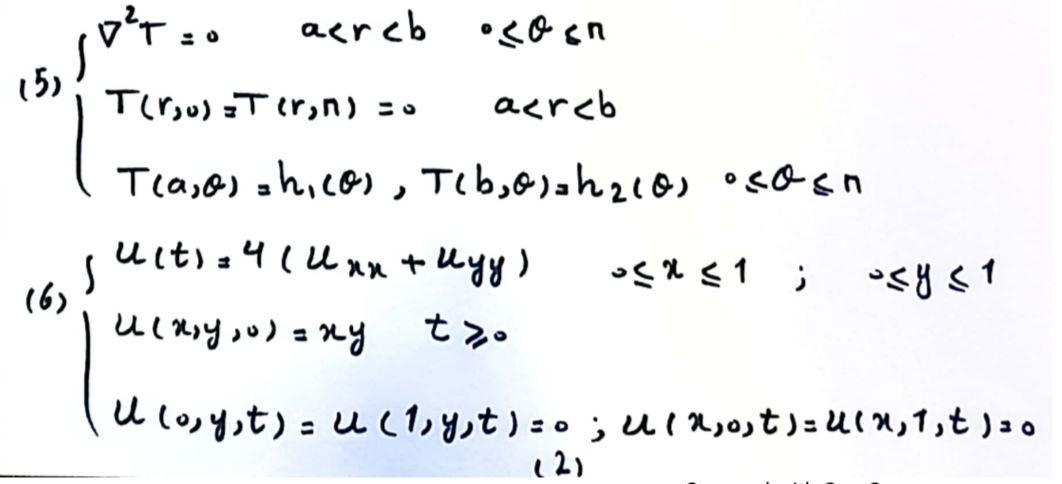 (5) { ∇²T = 0   a<r<b   0≤θ≤π
T(r,0) = T(r,π) = 0   a<r<b
T(a,θ) = h₁(θ) , T(b,θ) = h₂(θ)   0≤θ≤π
(6) { u(t) = 4(uₓₓ + u_yy)   0≤x≤1 ; 0≤y≤1
u(x,y,0) = xy   t≥0
u(0,y,t) = u(1,y,t) = 0 ; u(x,0,t) = u(x,1,t) = 0
(2)